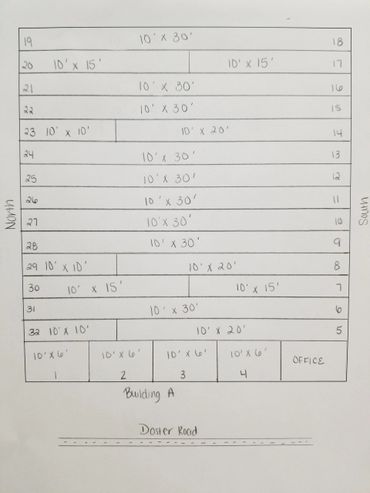 19 10' x 30' 18
20 10' x 15' 10' x 15' 17
21 10' x 30' 16
22 10' x 30' 15
23 10' x 10' 10' x 20' 14
24 10' x 30' 13
25 10' x 30' 12
26 10' x 30' 11
27 10' x 30' 10
28 10' x 30' 9
29 10' x 10' 10' x 20' 8
30 10' x 15' 10' x 15' 7
31 10' x 30' 6
32 10' x 10' 10' x 20' 5
10' x 6' 10' x 6' 10' x 6' 10' x 6' OFFICE
1 2 3 4
North
South
Building A
Doster Road